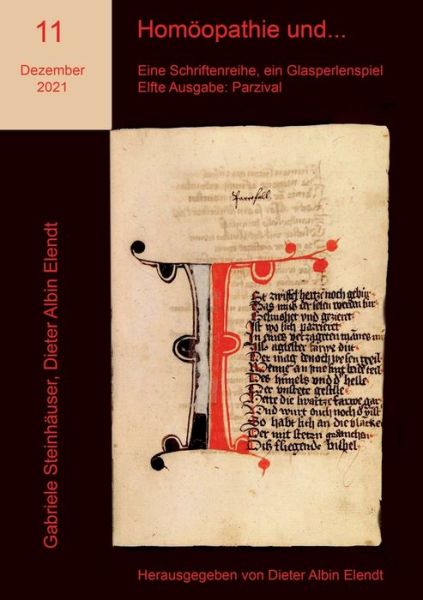 11
Dezember
2021
Homöopathie und...
Eine Schriftenreihe, ein Glasperlenspiel
Elfte Ausgabe: Parzival
Gabriele Steinhäuser, Dieter Albin Elendt
I
St zwifel hertze noch gebur
Das muß der selen werden sur
und gezieret
Ist wo sich parrieret
In eines verzagten mannes
Als agelster farwe dut
Der mag denoch wesen geil
Wenne an ime sint beide teil
Des himels und d' helle
Der unstete geselle
Hette die swartze farwe gar
Und wurt ouch noch d'
So habt sich an die blancke
Der mit steten gedancken
Dis fliegende bispel
Herausgegeben von Dieter Albin Elendt